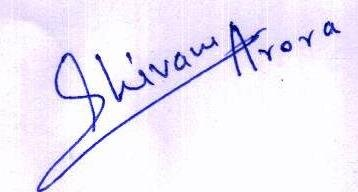 Shivam Arora